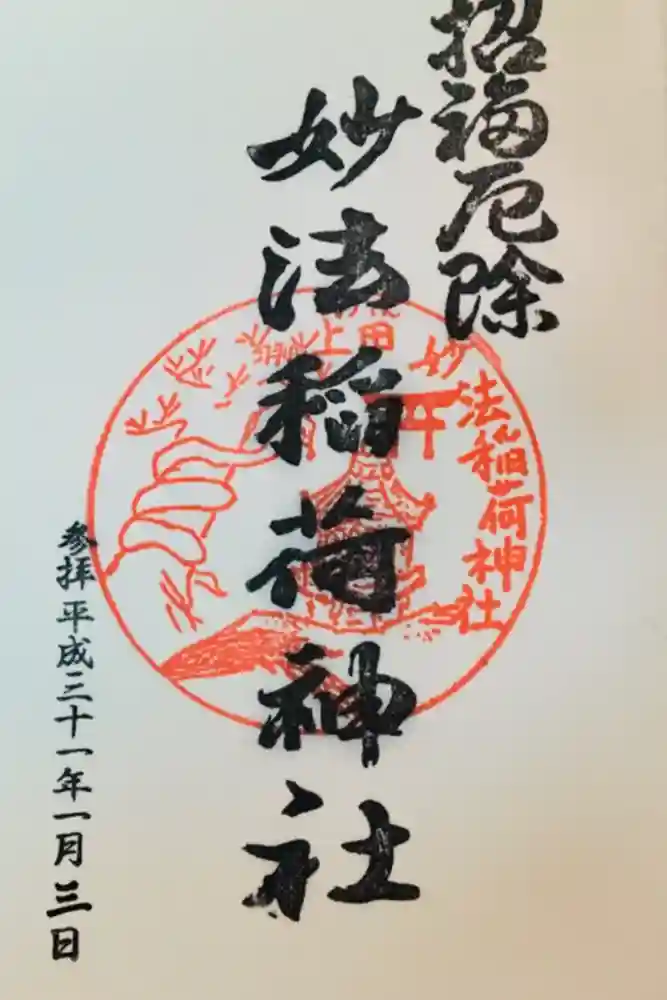 招福厄除
妙法稲荷神社
上田
妙法稲荷神社
参拝平成三十一年一月三日